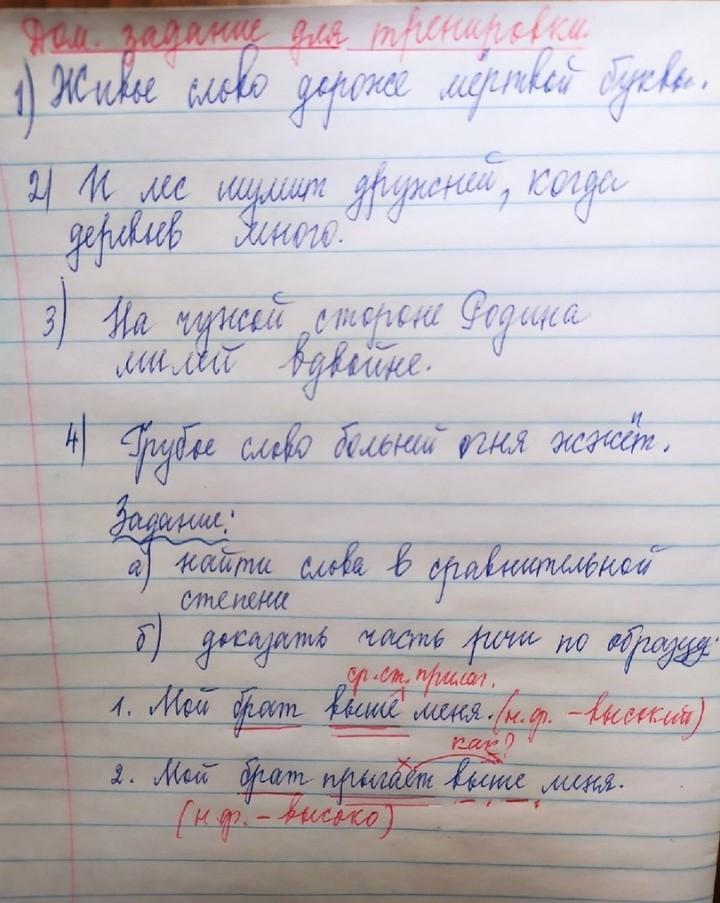 Дом. задание для тренировки.
1) Живое слово дороже мёртвой буквы.
2) И лес шумит дружней, когда
деревьев много.
3) На чужой стороне Родина
милей вдвойне.
4) Грубое слово больней огня жжёт.
Задание:
а) найти слова в сравнительной
степени
б) доказать часть речи по образцу:
ср. ст. прилаг.
1. Мой брат выше меня. (н.ф. – высокий)
как?
2. Мой брат прыгает выше меня.
(н.ф. – высоко)